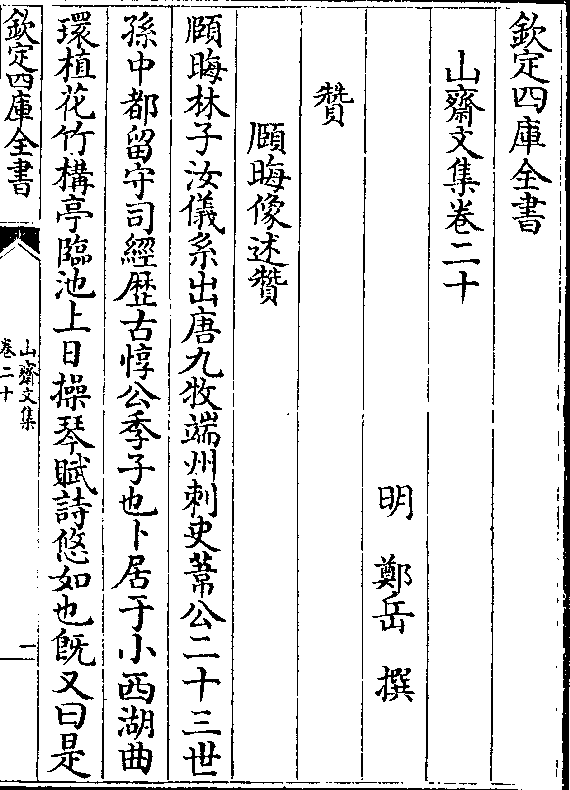 欽定四庫全書
山齋文集卷二十
明 鄭岳 撰
贊
頤晦像述贊
頤晦林子汝儀系出唐九牧端州刺史葦公二十三世
孫中都留守司經歴古惇公季子也卜居于小西湖曲
環植花竹構亭臨池上日操琴賦詩悠如也旣又曰是
欽定四庫全書
山齋文集
卷二十
一